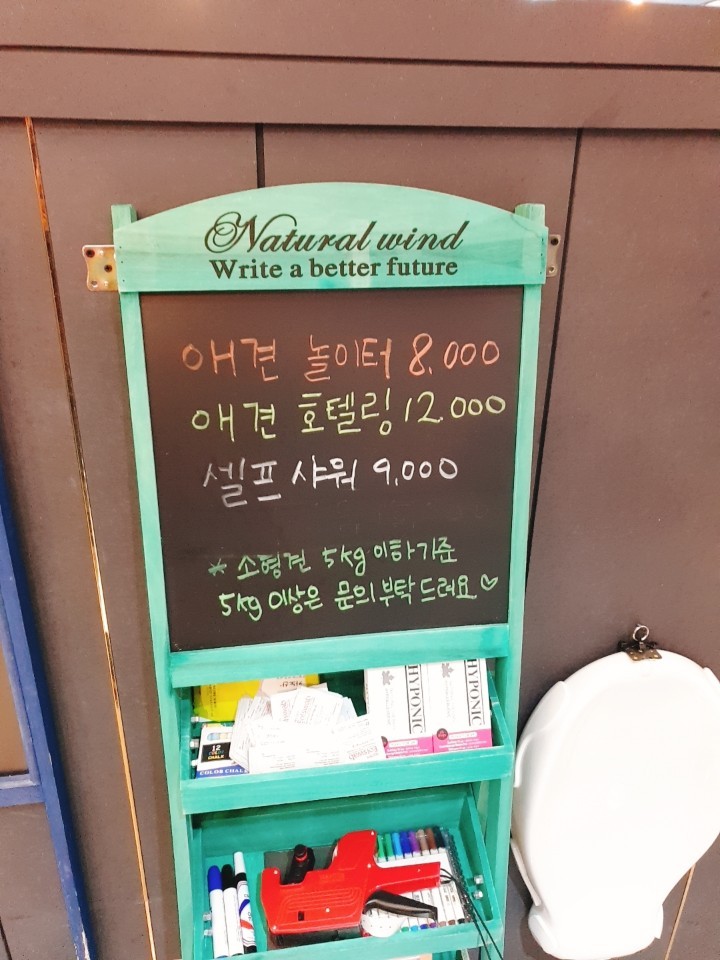 Natural wind
Write a better future
애견 놀이터 8,000
애견 호텔링 12.000
셀프 샤워 9,000
* 소형견 5kg 이하기준
5kg 이상은 문의부탁드려요♡
HYPONIC
HYPONIC
12
COLOR
CHALK
COLOR CHALK